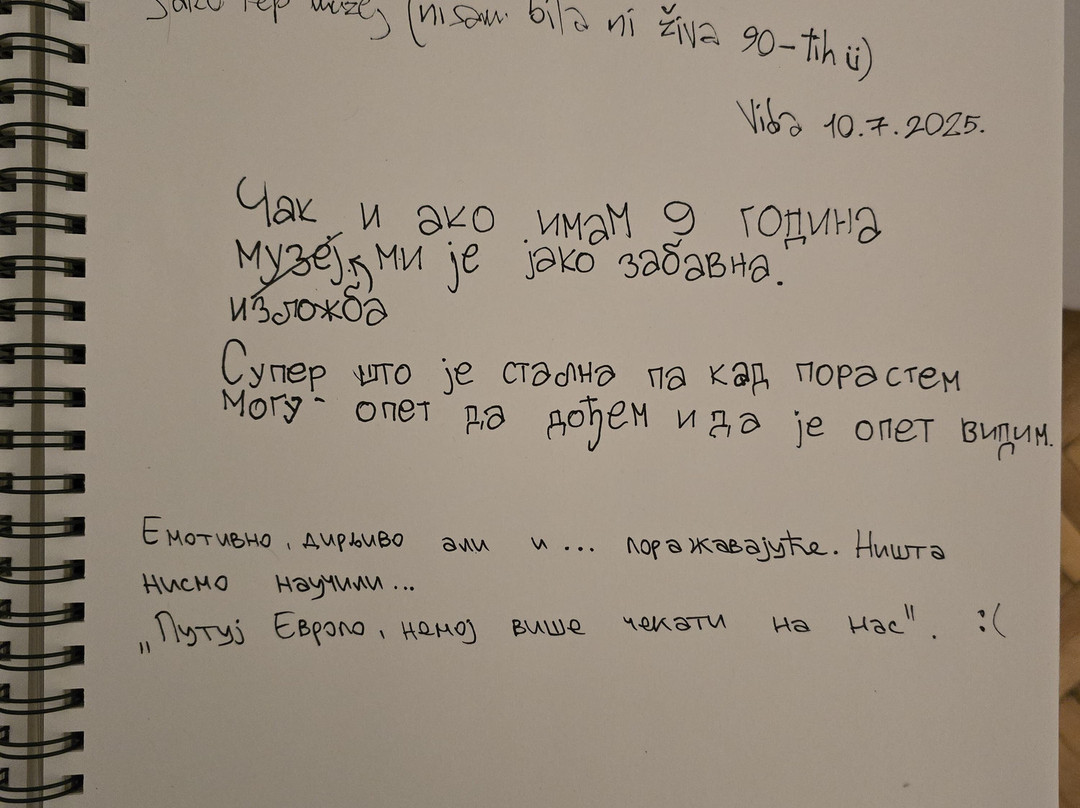 Jako lep muzej (nisam bila ni živa 90-tih ü)
Vida 10.7.2025.
Чак и ако имам 9 година
музеј ми је јако забавна.
изложба
Супер што је стална па кад порастем
могу опет да дођем и да је опет видим.
Емотивно, дирљиво али и... поражавајуће. Ништа
нисмо научили...
„Путуј Европо, немој више чекати на нас". :(